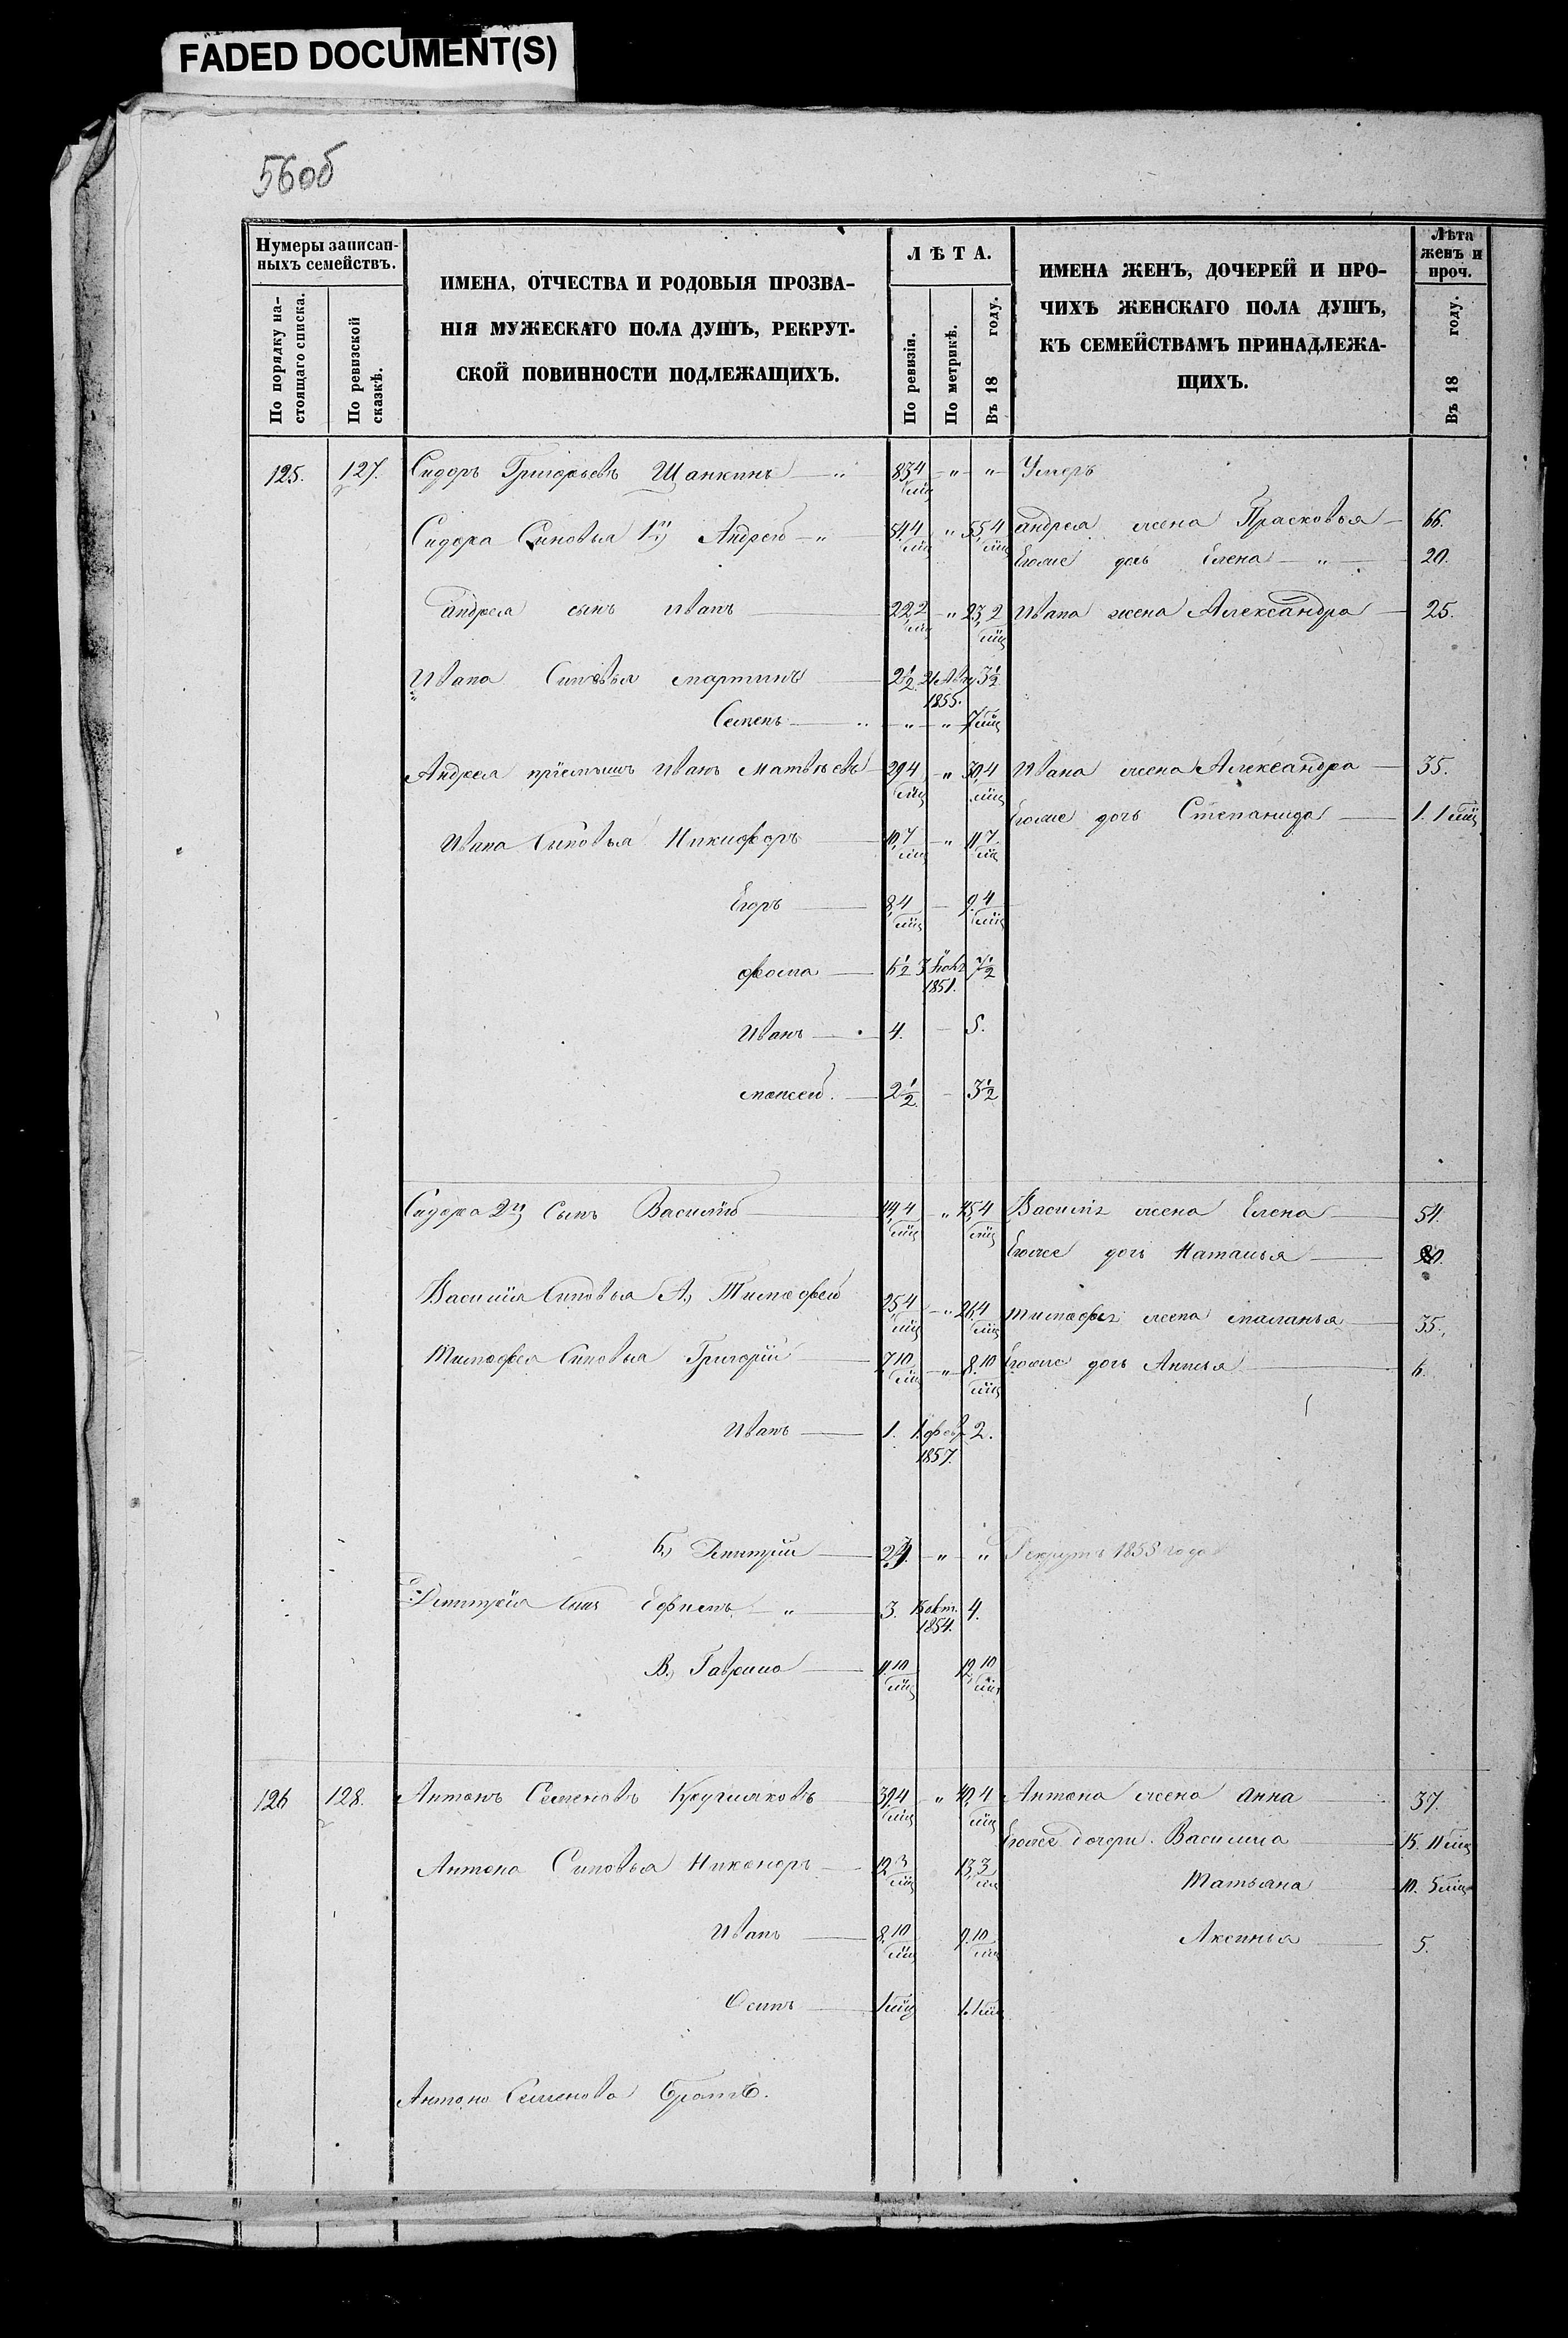 FADED DOCUMENT(S)
56об
Нумеры записан-
ныхъ семействъ.
По порядку на-
стоящаго списка.
По ревизской
сказкѣ.
ИМЕНА, ОТЧЕСТВА И РОДОВЫЯ ПРОЗВА-
НІЯ МУЖЕСКАГО ПОЛА ДУШЪ, РЕКРУТ-
СКОЙ ПОВИННОСТИ ПОДЛЕЖАЩИХЪ.
ЛѢТА.
По ревизіи.
По метрикѣ.
Въ 18 году.
ИМЕНА ЖЕНЪ, ДОЧЕРЕЙ И ПРО-
ЧИХЪ ЖЕНСКАГО ПОЛА ДУШЪ,
КЪ СЕМЕЙСТВАМЪ ПРИНАДЛЕЖА-
ЩИХЪ.
Лѣта
женъ и
проч.
Въ 18 году.
125. 127. Сидоръ Григорьевъ Щанкинъ — " 83,4 мѣц — " — " Умеръ
Сидора Синовья 1й Андрей — " 54,4 мѣц " 55,4 мѣц андрея жена Прасковья — 66.
Егоже дочь Елена — " — 20.
андрея сынъ Иванъ — 22,2 мѣц — " 23,2 мѣц Ивана жена Александра — 25.
Ивана Синовья мартинъ — 2 1/2. 21 Авгу 1855. 3 1/2
Семенъ — " — " — " 7 мѣц
Андрея пріемышъ Иванъ матвѣевъ — 29,4 мѣц — " 30,4 мѣц Ивана жена Александра — 35.
Егоже дочь Степанида — 1. 1 мѣц
Ивана Синовья Никифоръ — 10,7 мѣц — " 11,7 мѣц
Егоръ — 8,4 мѣц — 9,4 мѣц
фома — 6 1/2 1851. 7 1/2
Иванъ — 4. — 5.
моисей. — 2 1/2. — 3 1/2
Сидора 2й Сынъ Василій — 44,4 мѣц " 45,4 мѣц Василія жена Елена — 54.
Егоже дочь Наталья — 20.
Василія Синовья А, Тимофей 25,4 мѣц — " 26,4 мѣц тимофея жена маланья — 35.
Тимофея Синовья Григорій — 7,10 мѣц — " — 8,10 мѣц Егоже дочь Анисья — 6.
Иванъ — 1. 1 февр 1857. 2.
Б, Дмитрій — 24. — " — " Рекрутъ 1855 года
Дмитрія Сынъ Ефимъ — " — 3. 15 окт. 1854. 4.
В, Гаврило — 11,10 мѣц 12,10 мѣц
126 128. Антонъ Семеновъ Кругляковъ — 39,4 мѣц " 40,4 мѣц Антона жена анна — 37.
Егоже дочери. Василиса — 15. 11 мѣц
Антона Синовья Никаноръ — 12,3 мѣц 13,3 мѣц
Татьяна — 10. 5 мѣц
Иванъ — 8,10 мѣц 9,10 мѣц Аксинья — 5.
Осипъ — 1 мѣц 1. 1 мѣц
Антона Семенова братъ.